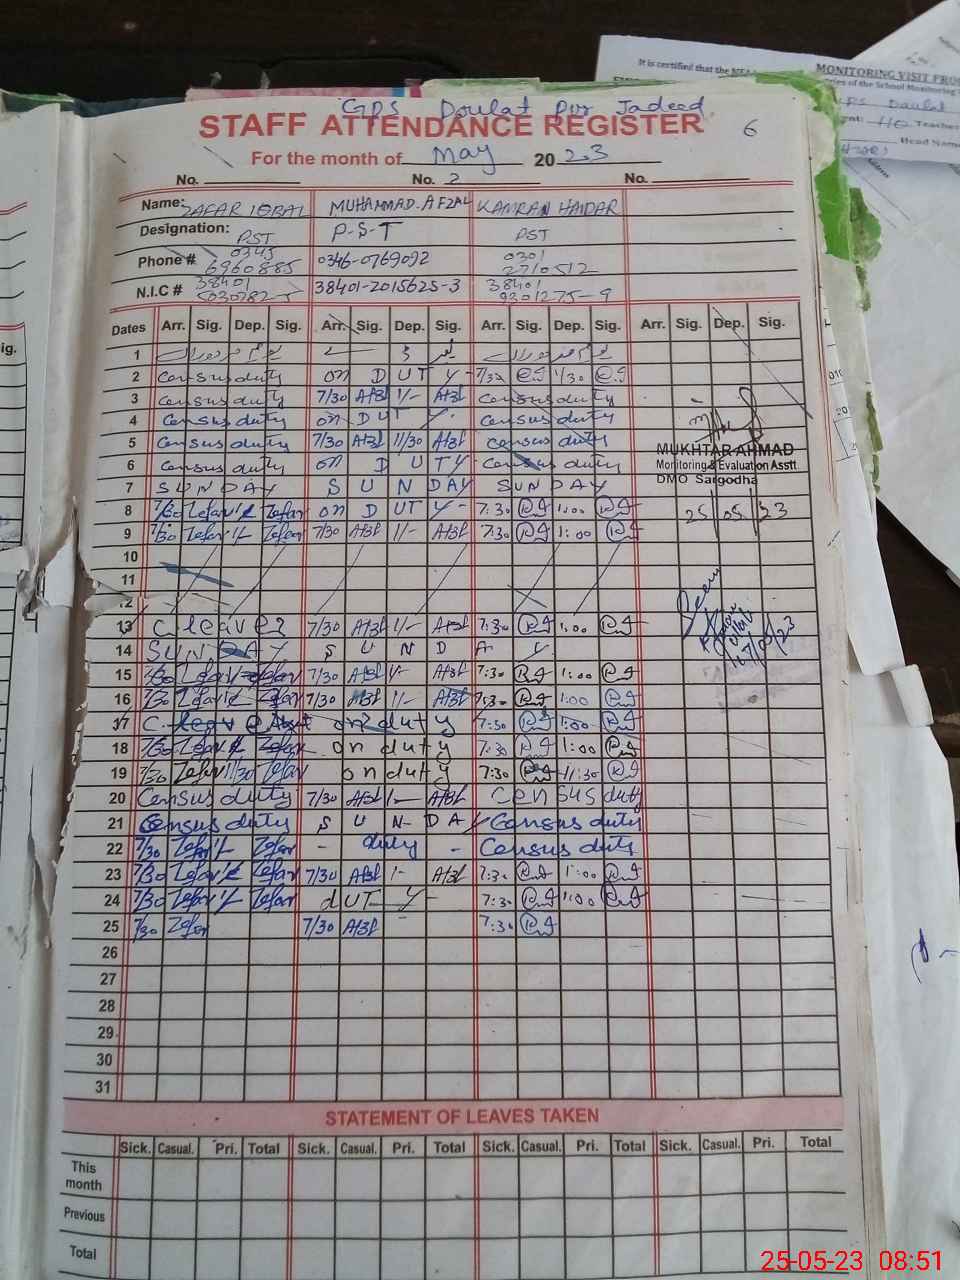 It is certified that the
MONITORING VISIT PRO
of the School Monitoring
Daulat
Teacher
Head Name
GPS Doulat Pur Jadeed
STAFF ATTENDANCE REGISTER 6
For the month of May 2023
No. No. 2 No.
Name: ZAFAR IQBAL MUHAMMAD.AFZAL KAMRAN HAIDAR
Designation: PST P-S-T PST
Phone # 0345 6960885 0346-0769092 0301 2710512
N.I.C # 38401 38401-2015625-3 38401 9301275-9
Dates Arr. Sig. Dep. Sig. Arr. Sig. Dep. Sig. Arr. Sig. Dep. Sig. Arr. Sig. Dep. Sig.
1
2 Census duty on DUTY 7/30 1/30
3 Census duty 7/30 Afzl 1/- Afzl Census duty
4 Census duty on DUTY Census duty
5 Census duty 7/30 Afzl 11/30 Afzl Census duty
6 Census duty on DUTY Census duty
7 SUNDAY SUNDAY SUNDAY
8 7/30 Zefar Zefar on DUTY 7:30 1:00
9 7/30 Zefar Zefar 7/30 Afzl 1/- Afzl 7:30 1:00
10
11
12
13 C.leave 2 7/30 Afzl 1/- Afzl 7:30 1:00
14 SUNDAY SUNDAY
15 7/30 Zefar Zefar 7/30 Afzl 1/- Afzl 7:30 1:00
16 7/30 Zefar Zefar 7/30 Afzl 1/- Afzl 7:30 1:00
17 C.leave on duty 7:30 1:00
18 7/30 Zefar Zefar on duty 7:30 1:00
19 7/30 Zefar 11/30 Zefar on duty 7:30 11:30
20 Census duty 7/30 Afzl 1- Afzl Census duty
21 Census duty SUNDAY Census duty
22 7/30 Zefar Zefar - duty - Census duty
23 7/30 Zefar Zefar 7/30 Afzl 1- Afzl 7:30 1:00
24 7/30 Zefar Zefar dUTY 7:30 1:00
25 7/30 Zefar 7/30 Afzl 7:30
26
27
28
29
30
31
MUKHTAR AHMAD
Monitoring & Evaluation Asstt
DMO Sargodha
25/05/23
STATEMENT OF LEAVES TAKEN
Sick. Casual. Pri. Total Sick. Casual. Pri. Total Sick. Casual. Pri. Total Sick. Casual. Pri. Total
This month
Previous
Total
25-05-23 08:51